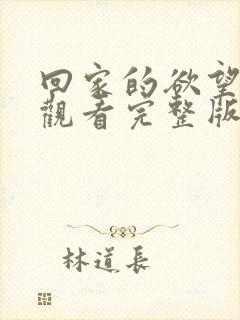 回家的欲望
觀看完整版
林道長